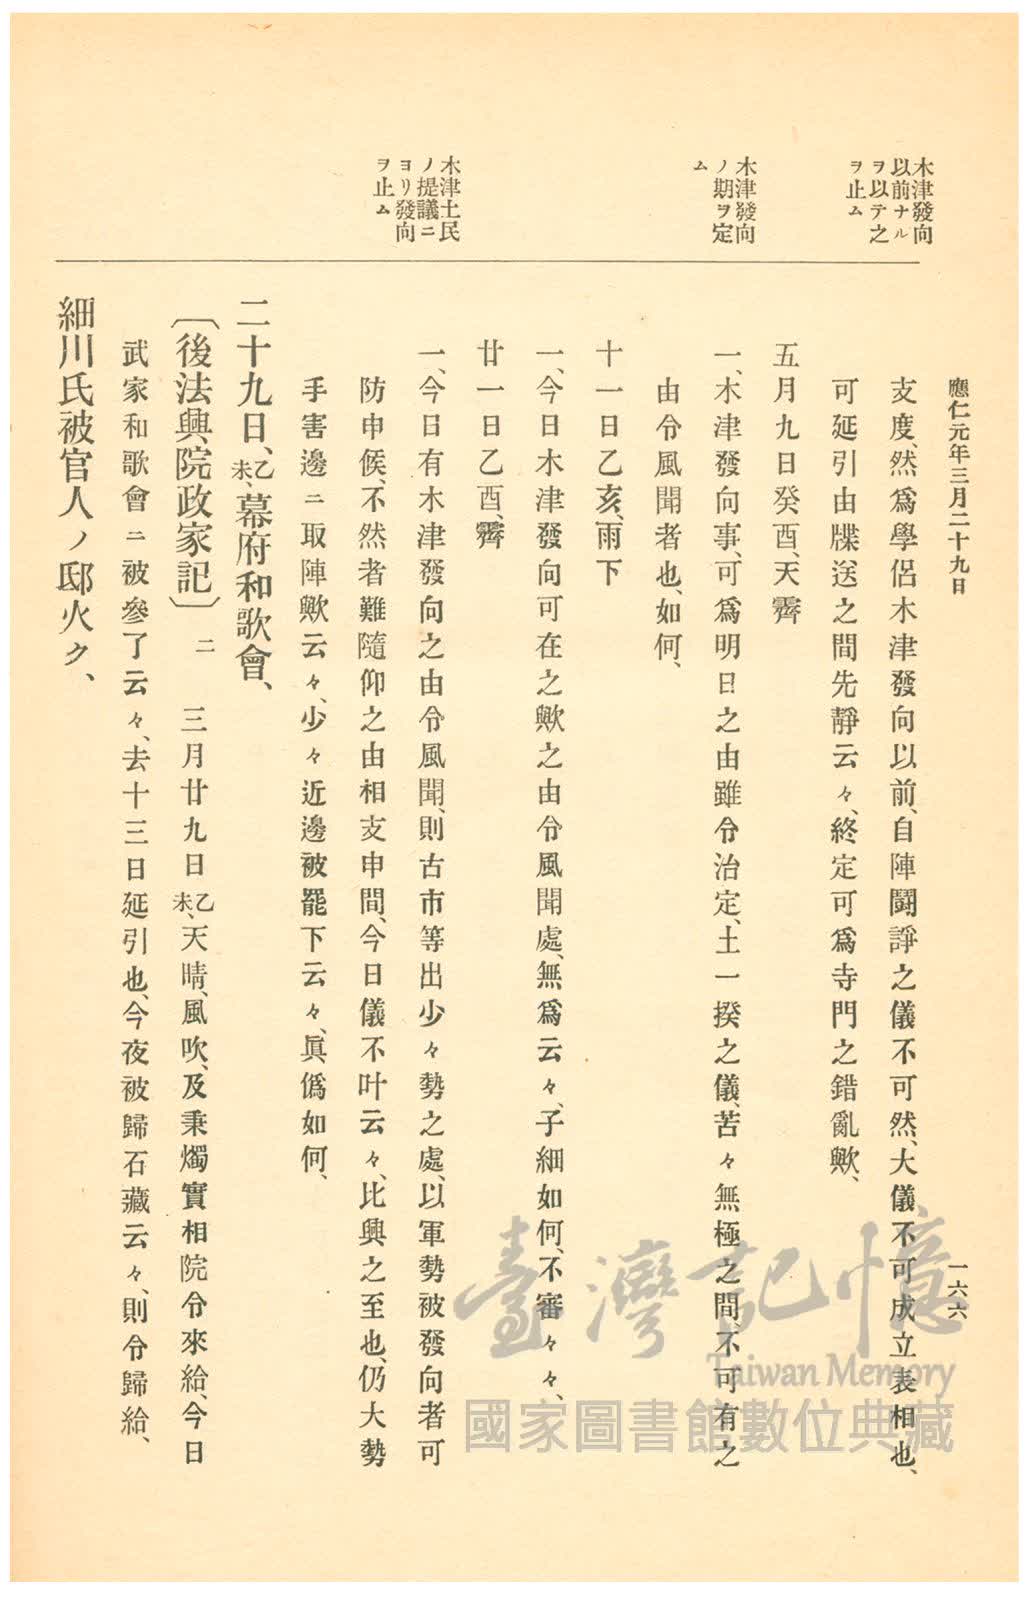 應仁元年三月二十九日
一六六
木津發向
以前ナル
ヲ以テ之
ヲ止ム
木津發向
ノ期ヲ定
ム
木津土民
ノ提議ニ
ヨリ發向
ヲ止ム
支度、然爲學侶木津發向以前、自陣鬪諍之儀不可然、大儀不可成立表相也、
可延引由牒送之間先靜云々、終定可爲寺門之錯亂歟、
五月九日癸酉、天霽
一、木津發向事、可爲明日之由雖令治定、土一揆之儀、苦々無極之間、不可有之
由令風聞者也、如何、
十一日乙亥、雨下
一、今日木津發向可在之歟之由令風聞處、無爲云々、子細如何、不審々々、
廿一日乙酉、霽
一、今日有木津發向之由令風聞、則古市等出少々勢之處、以軍勢被發向者可
防申候、不然者難隨仰之由相支申間、今日儀不叶云々、比興之至也、仍大勢
手害邊ニ取陣歟云々、少々近邊被罷下云々、眞僞如何、
二十九日、乙未、幕府和歌會、
〔後法興院政家記〕二 三月廿九日乙未、天晴、風吹、及秉燭實相院令來給、今日
武家和歌會ニ被參了云々、去十三日延引也、今夜被歸石藏云々、則令歸給、
細川氏被官人ノ邸火ク、
臺灣記憶
Taiwan Memory
國家圖書館數位典藏